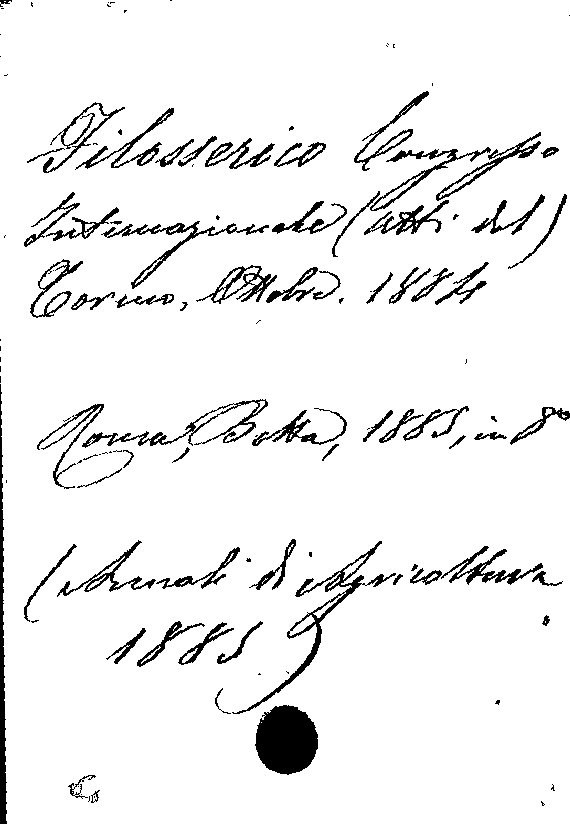 Filosserico Congresso
Internazionale (Atti del)
Torino, Ottobre. 1884
Roma, Botta, 1885, in 8º
(Annali di Agricoltura
1885)